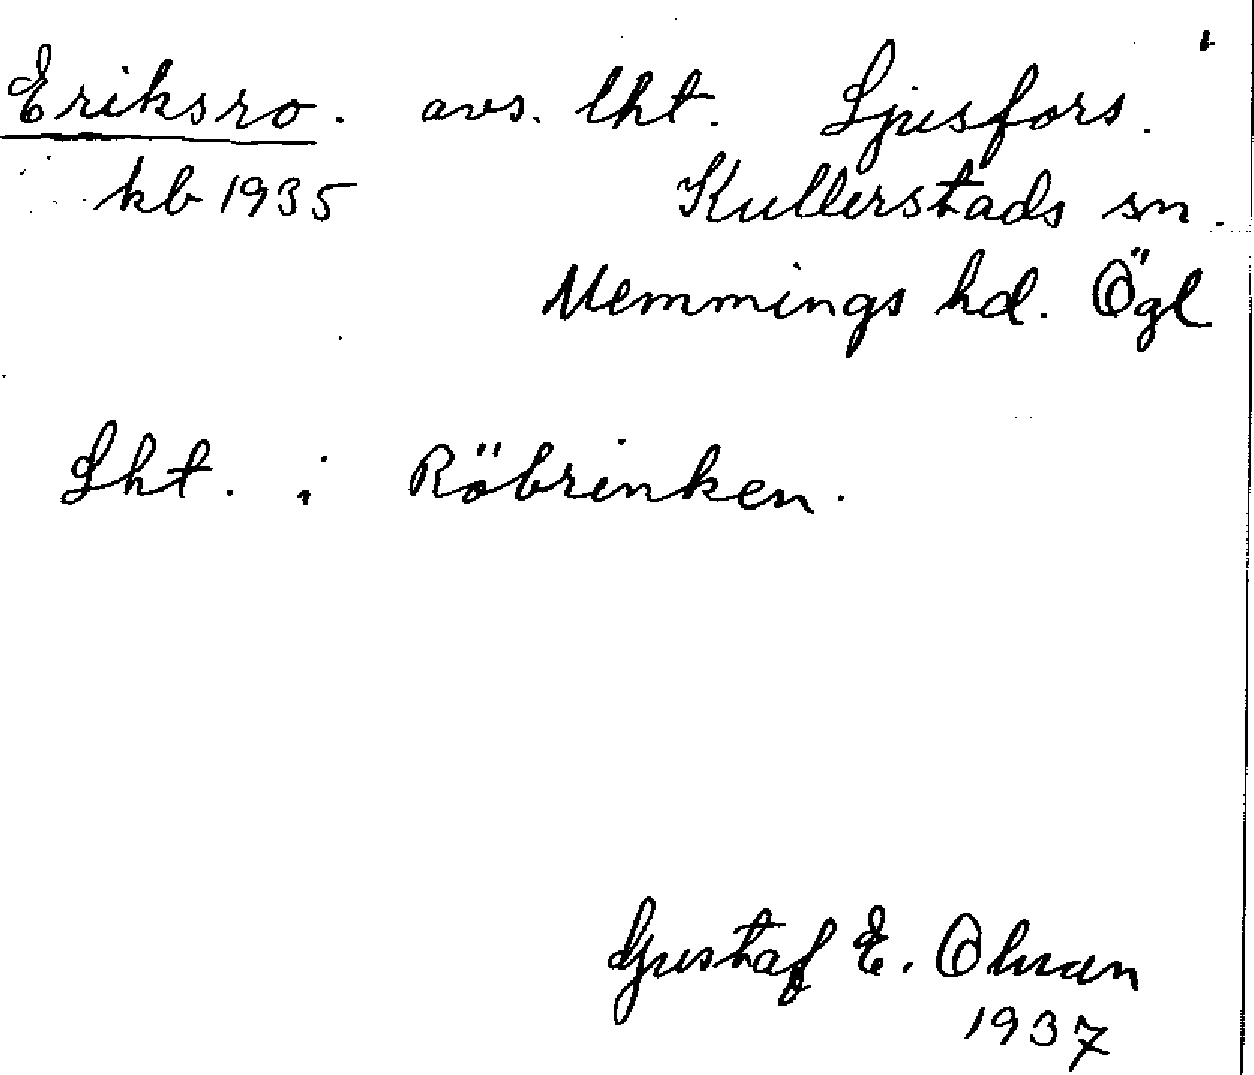 Eriksro. avs. lht. Ljusfors.
kb 1935 Kullerstads sn.
Memmings hd. Ögl
Lht. i Röbrinken.
Gustaf E. Ohman
1937